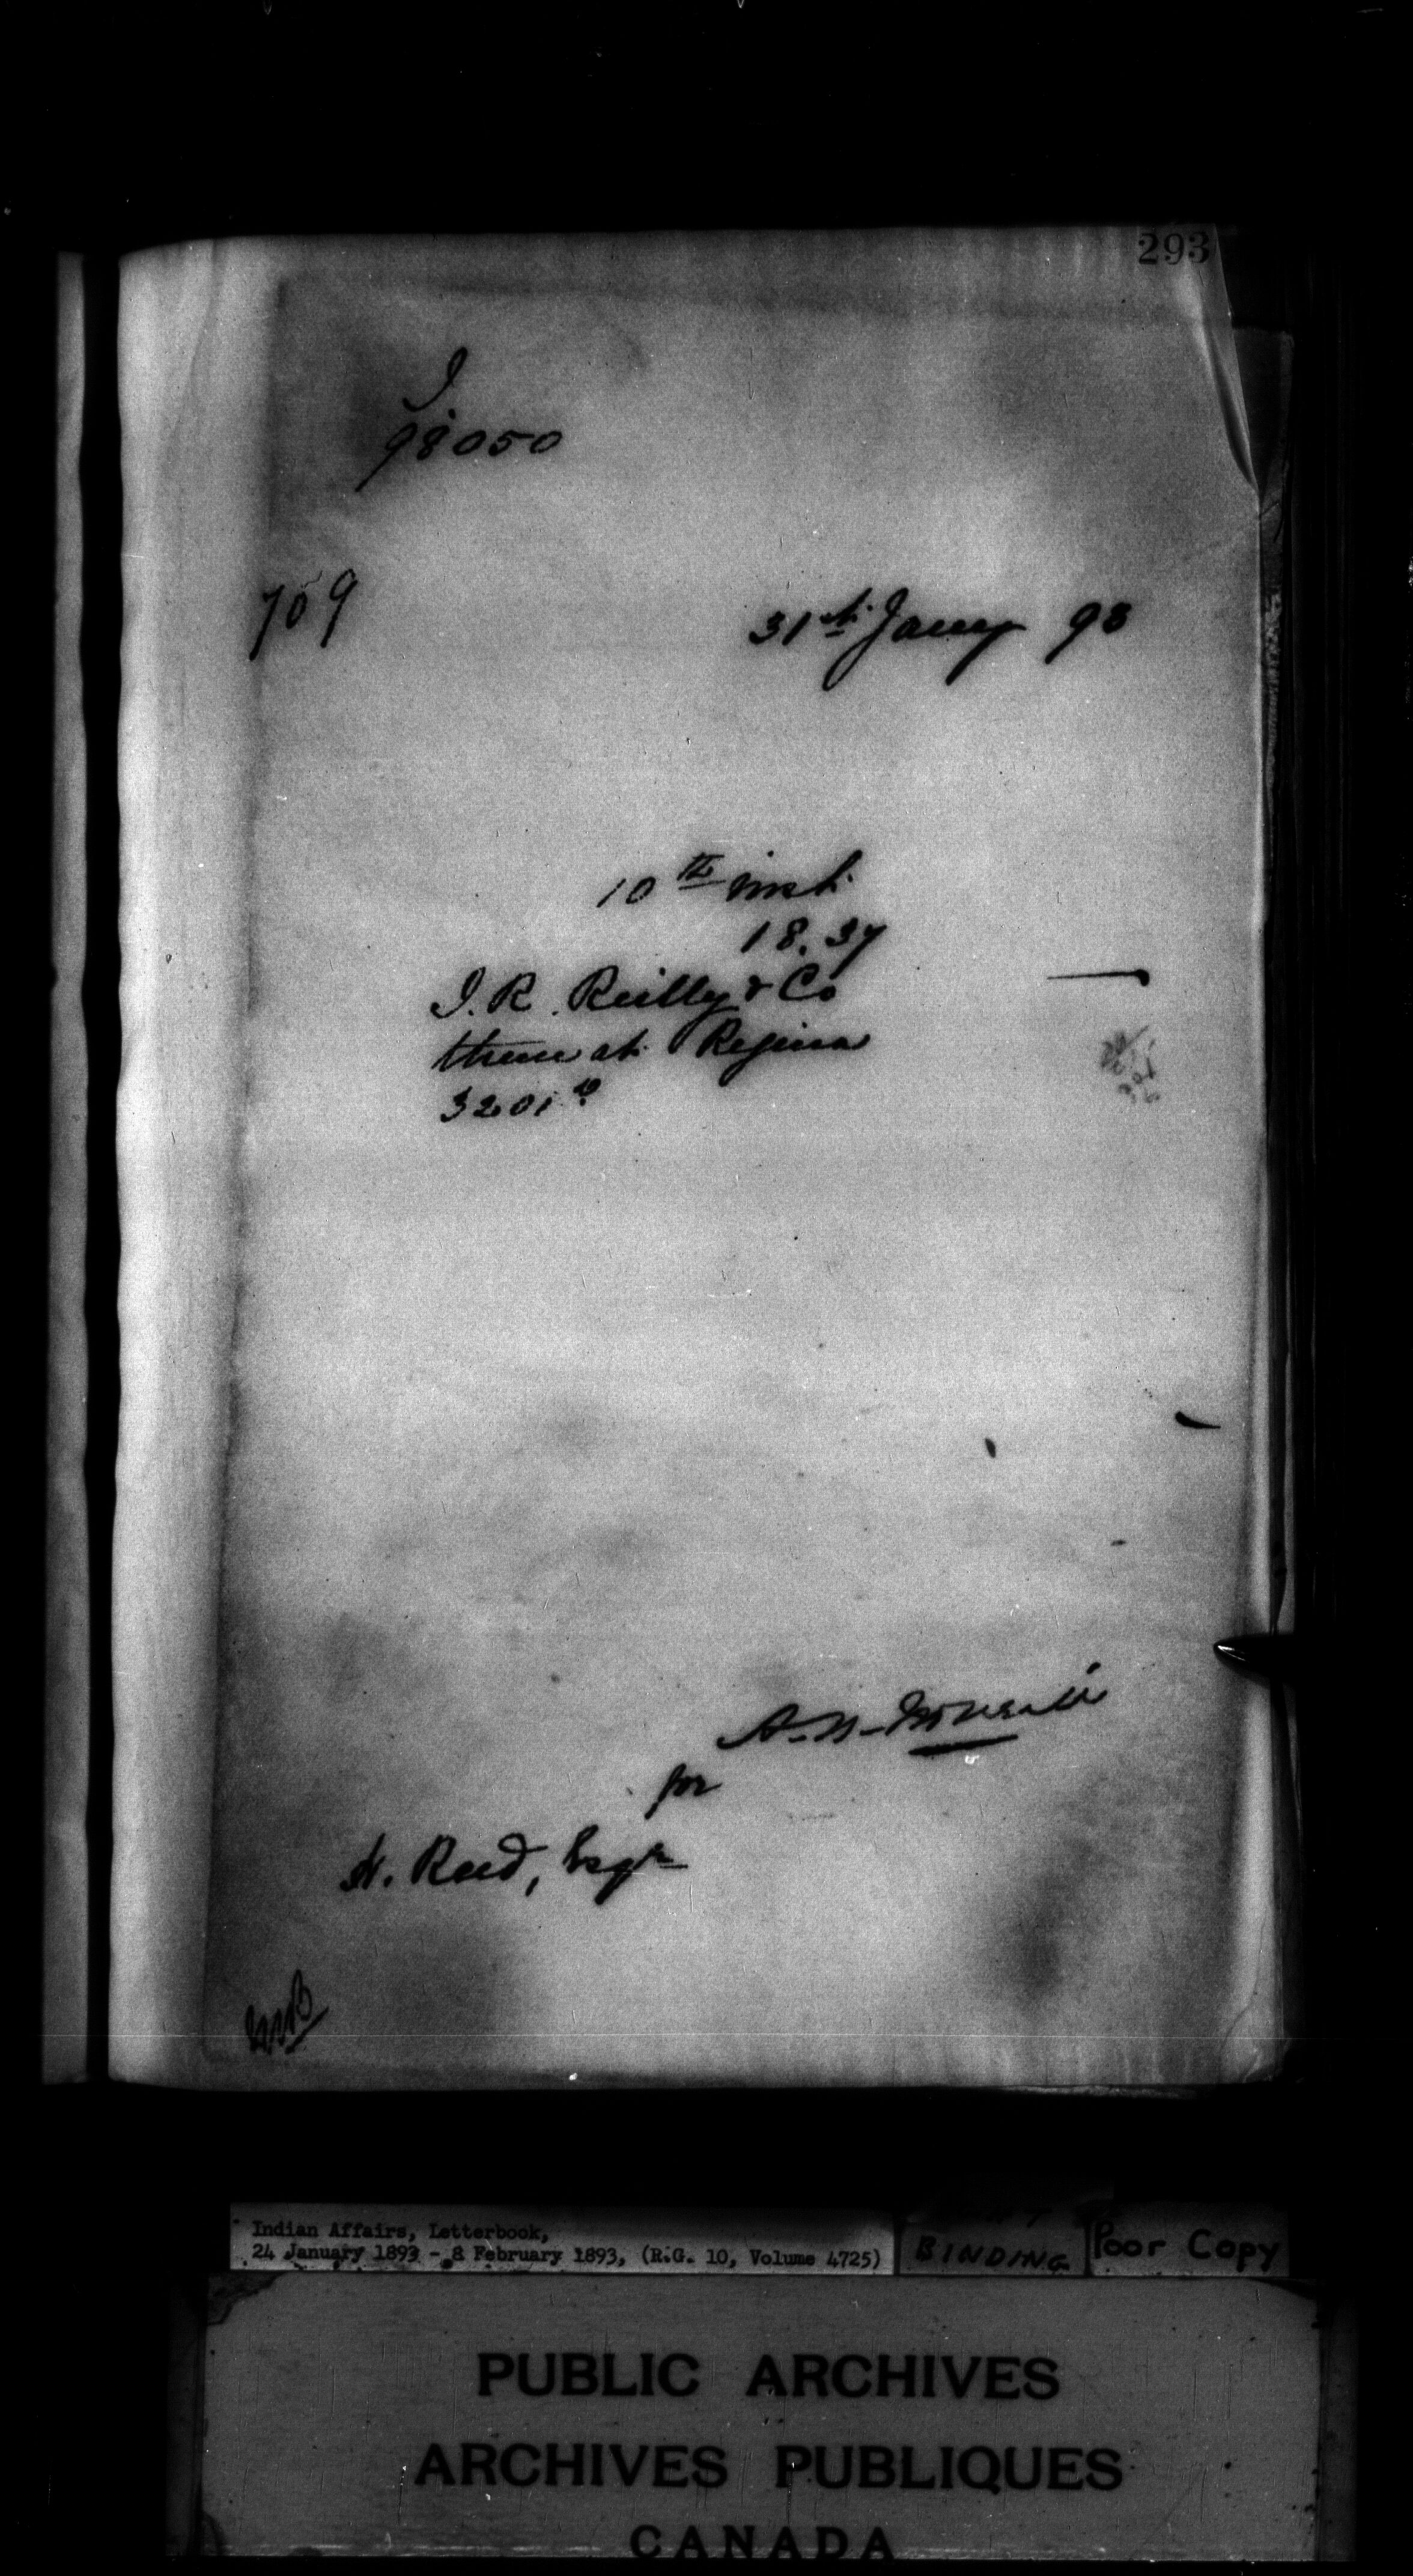 293
J.
98050
709
31st Jany 93
10th inst.
18.37
J. R. Reilly & Co
them at Regina
3201
for
H. Reed, Esqr
Indian Affairs, Letterbook,
24 January 1893 - 8 February 1893, (R.G. 10, Volume 4725)
BINDING
Poor Copy
PUBLIC ARCHIVES
ARCHIVES PUBLIQUES
CANADA